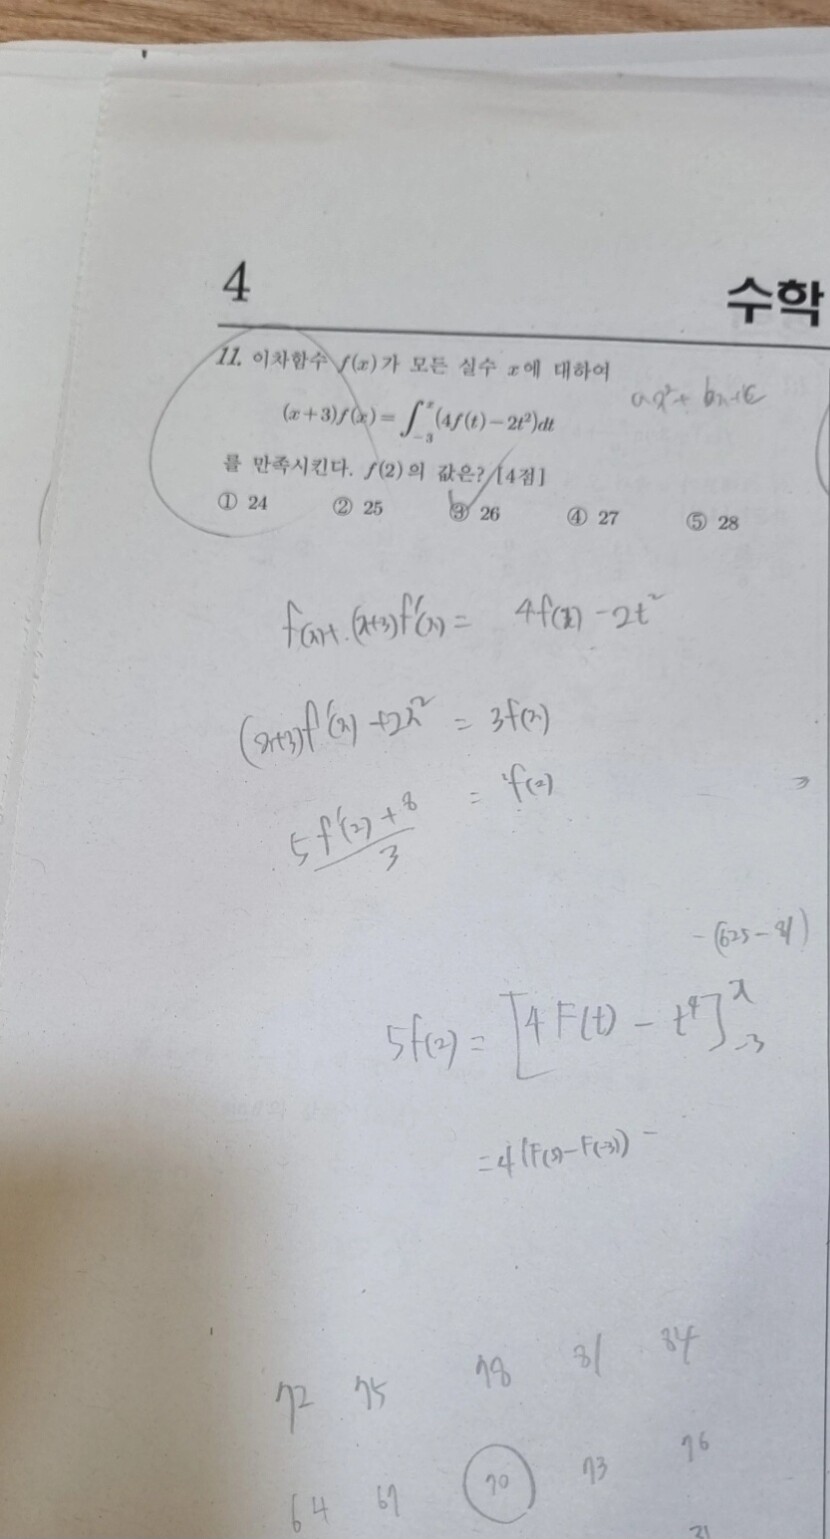 4
수학
11. 이차함수 f(x)가 모든 실수 x에 대하여
ax²+ bx+c
(x+3)f(x)=∫₋₃ˣ(4f(t)−2t²)dt
를 만족시킨다. f(2)의 값은? [4점]
① 24 ② 25 ③ 26 ④ 27 ⑤ 28
f(x)+(x+3)f'(x) = 4f(x) -2t²
(x+3)f'(x) +2x² = 3f(x)
5f'(2)+8 / 3 = f(2)
-(625-81)
5f(2) = [4F(t) - t⁴]ˣ₋₃
=4(F(2)-F(-3)) -
72 75 78 81 84
64 67 70 73 76